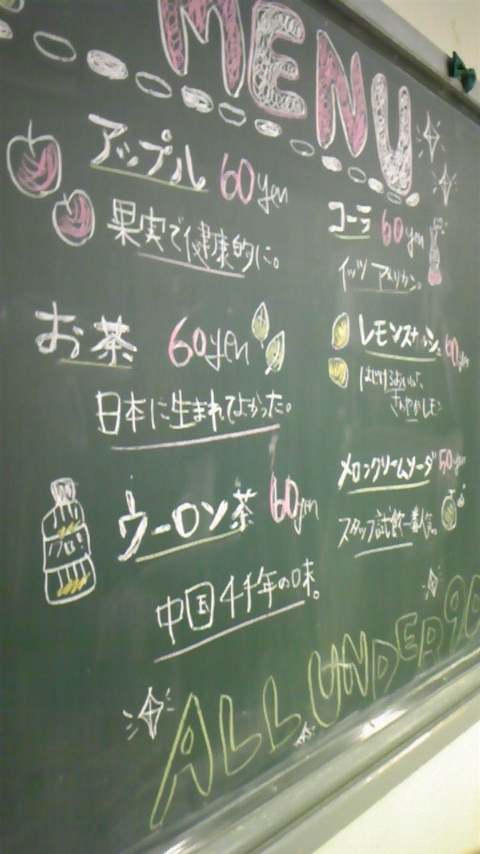 MENU
アップル 60yen
果実で健康的に。
お茶 60yen
日本に生まれてよかった。
ウーロン茶 60yen
中国4千年の味。
コーラ 60yen
イッツ アメリカン。
レモンスカッシュ 60yen
さわやかレモン
メロンクリームソーダ 50yen
スタッフ試飲一番人気。
ALL UNDER 90